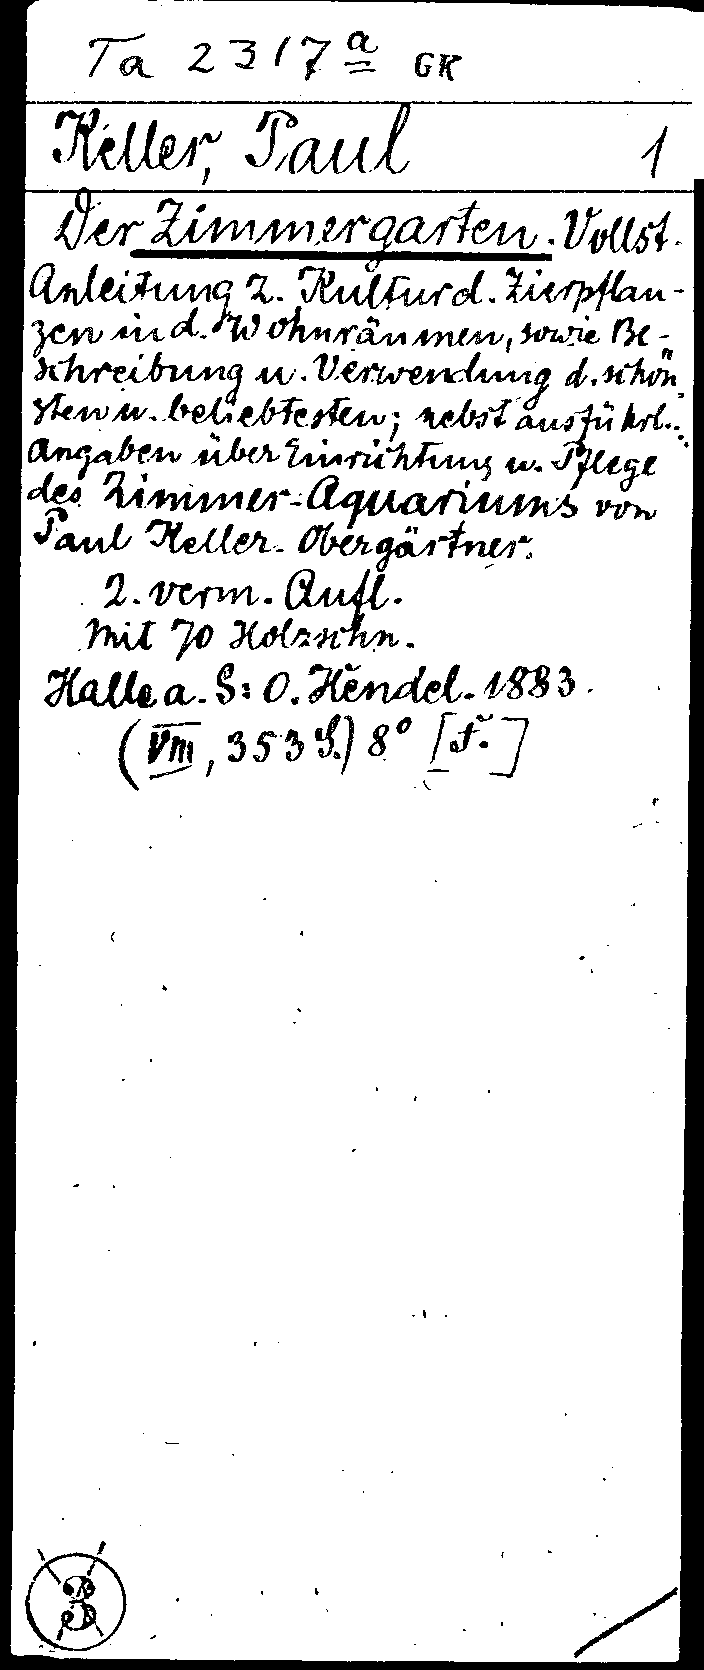 Ta 2317a GK
Keller, Paul 1
Der Zimmergarten. Vollst.
Anleitung z. Kultur d. Zierpflan-
zen in d. Wohnräumen, sowie Be-
schreibung u. Verwendung d. schön-
sten u. beliebtesten; nebst ausführl.
Angaben über Einrichtung u. Pflege
des Zimmer-Aquariums von
Paul Keller. Obergärtner.
2. verm. Aufl.
Mit 70 Holzschn.
Halle a. S: O. Hendel. 1883.
(VIII, 353 S.) 8°
3